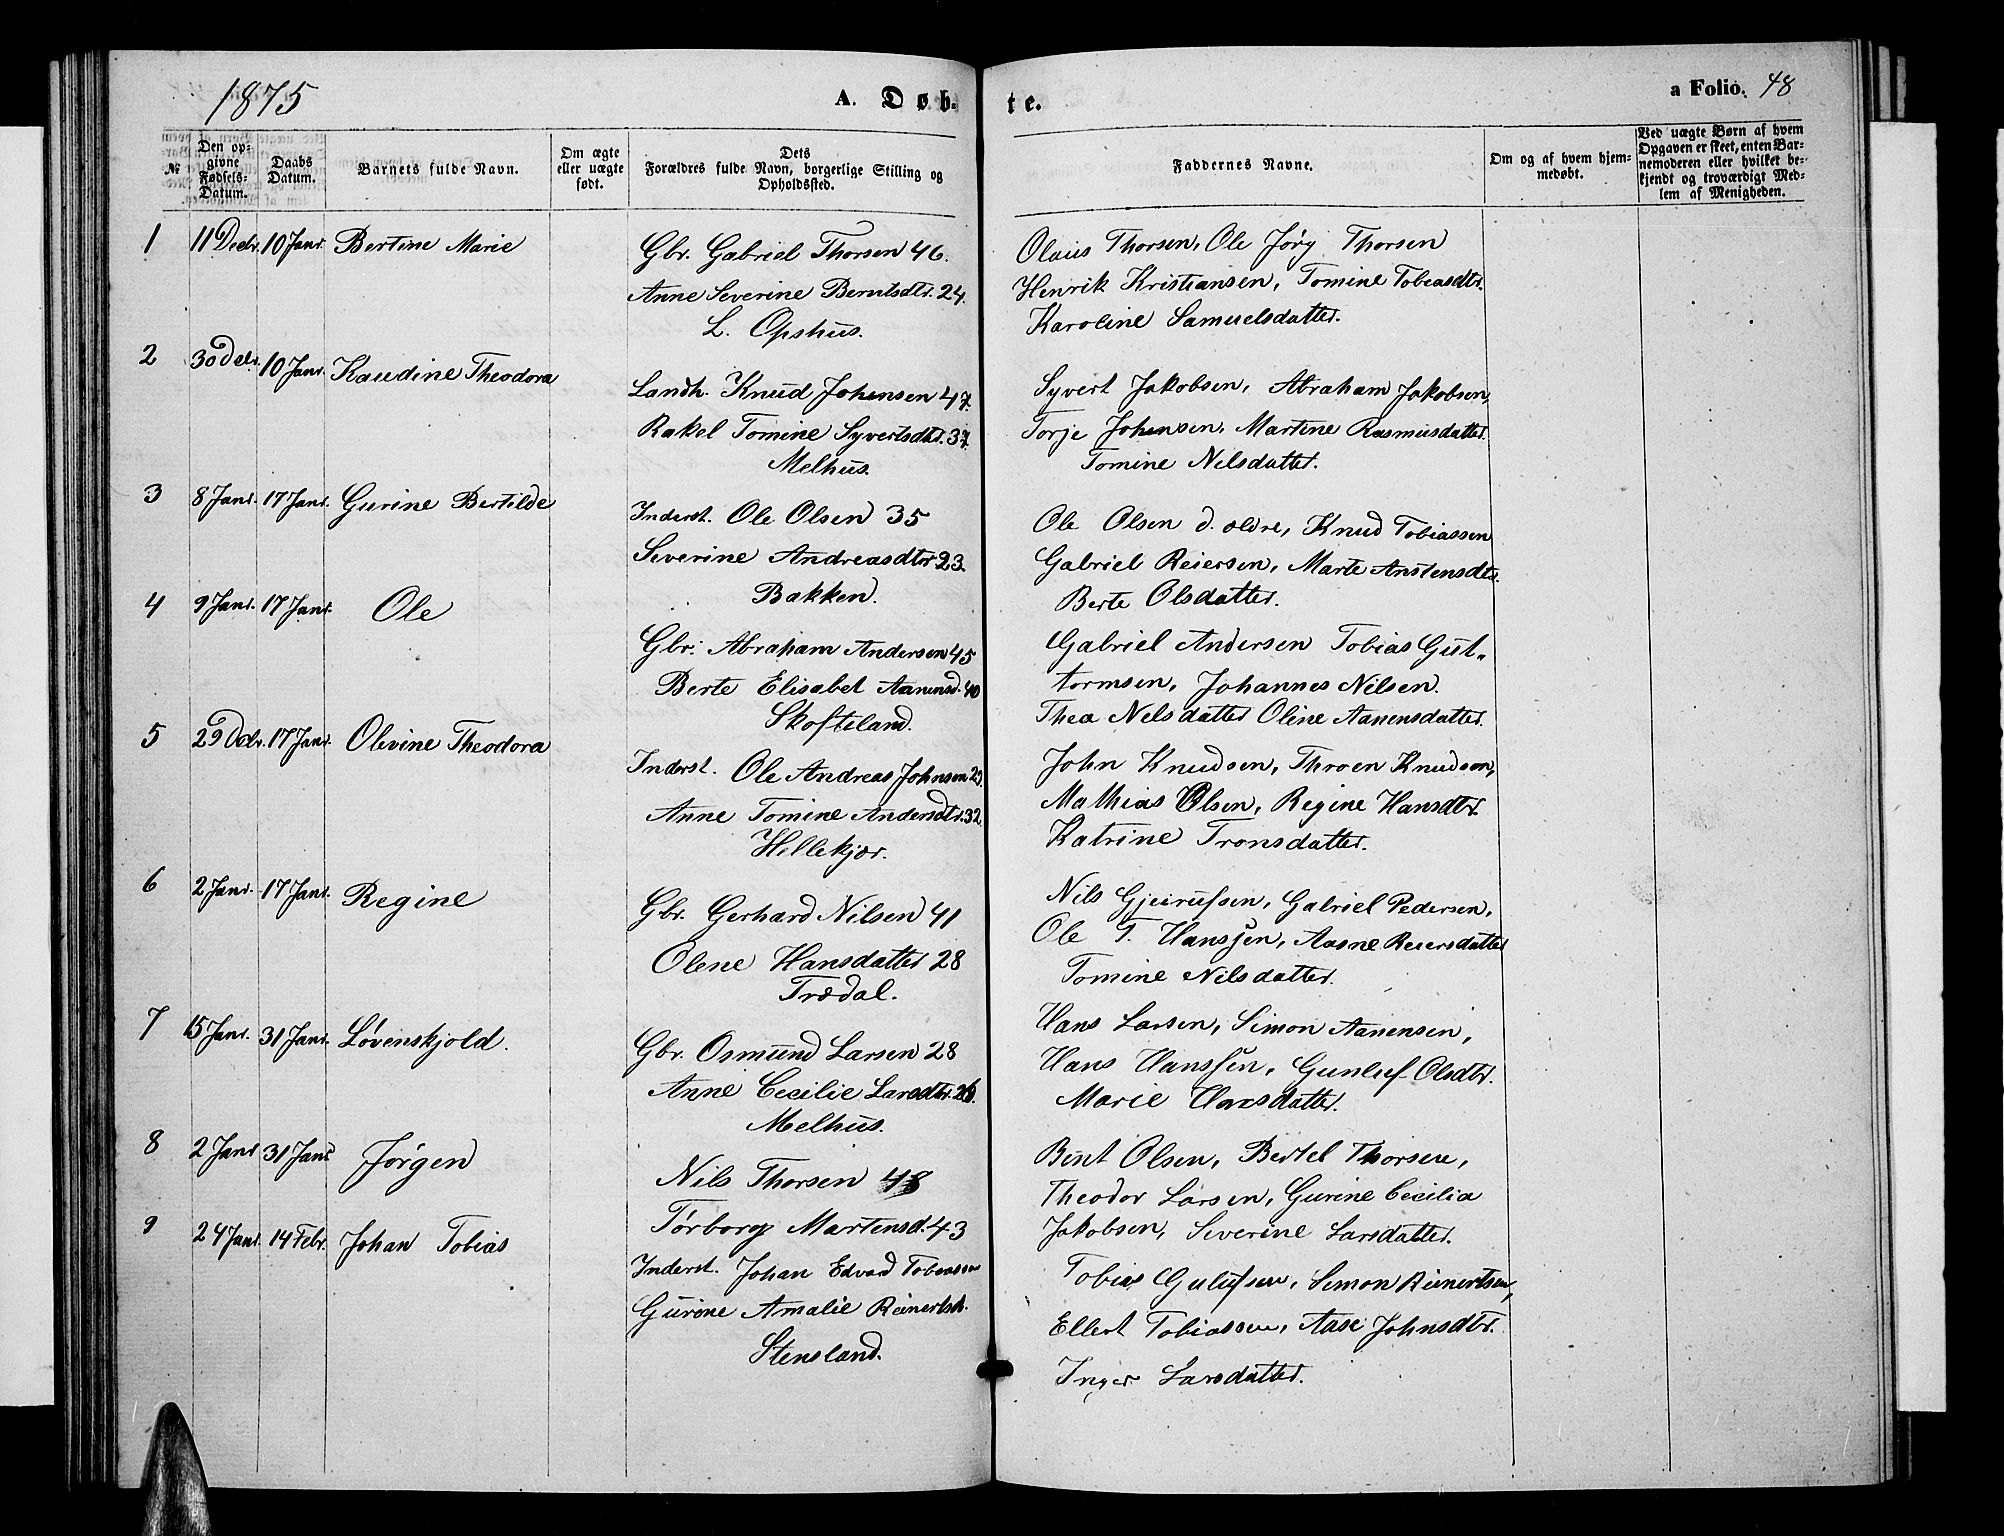 1875
A. Døb-
te.
a Folio. 48
№
Den op-
givne
Fødsels-
Datum.
Daabs
Datum.
Barnets fulde Navn.
Om ægte
eller uægte
født.
Dets
Forældres fulde Navn, borgerlige Stilling og
Opholdssted.
Faddernes Navne.
Om og af hvem hjem-
medøbt.
Ved uægte Børn af hvem
Opgaven er skeet, enten Bar-
nemoderen eller hvilket be-
kjendt og troværdigt Med-
lem af Menigheden.
1 11 Decbr. 10 Janr. Bertine Marie
Gbr. Gabriel Thorsen 46.
Anne Severine Berntsdtr. 24.
L. Opshus.
Olaus Thorsen, Ole Jørg Thorsen
Henrik Kristiansen, Tomine Tobiasdtr.
Karoline Samuelsdatter.
2 30 Decbr. 10 Janr. Kaudine Theodora
Landh. Knud Johnsen 47.
Rakel Tomine Syvertsdtr. 37.
Melhus.
Syvert Jakobsen, Abraham Jakobsen,
Torje Johnsen, Martine Rasmusdatter
Tomine Nilsdatter.
3 8 Janr. 17 Janr. Gurine Bertilde
Inderst. Ole Olsen 35
Severine Andreasdtr 23.
Bakken.
Ole Olsen d. ældre, Knud Tobiassen
Gabriel Reiersen, Marte Anstensdtr.
Berte Olsdatter.
4 9 Janr. 17 Janr. Ole
Gbr. Abraham Andersen 45
Berte Elisabet Aanensd. 40
Skofteland.
Gabriel Andersen Tobias Gut-
tormsen, Johannes Nilsen.
Thea Nelsdatter Oline Aanensdatter.
5 29 Decbr. 17 Janr. Olevine Theodora
Inderst. Ole Andreas Johnsen 29.
Anne Tomine Andersdtr. 32.
Hellekjær.
John Knudsen, Throen Knudsen,
Mathias Olsen, Regine Hansdtr.
Katrine Tronsdatter.
6 2 Janr. 17 Janr. Regine
Gbr. Gerhard Nilsen 41
Olene Hansdatter 28
Trædal.
Nils Gjeirulfsen, Gabriel Pedersen,
Ole T. Hanssen, Aasne Reiersdatter
Tomine Nilsdatter.
7 15 Janr. 31 Janr. Løvenskjold.
Gbr. Osmund Larsen 28
Anne Cecilie Larsdtr. 26.
Melhus.
Hans Larsen, Simon Aanensen,
Hans Hanssen, Gunluf Olsdtr.
Marie Hansdatter.
8 2 Janr 31 Janr Jørgen
Nils Thorsen 48
Tørborg Martensd. 43
Bent Olsen, Bertel Thorsen,
Theodor Larsen, Gurine Cecilia
Jakobsen, Severine Larsdatter.
9 24 Janr. 14 Febr. Johan Tobias
Inderst. Johan Edvard Tobiassen
Gurine Amalie Reinertsd.
Stensland.
Tobias Gulufsen, Simon Reinertsen,
Ellert Tobiassen, Aase Johnsdtr.
Inger Larsdatter.